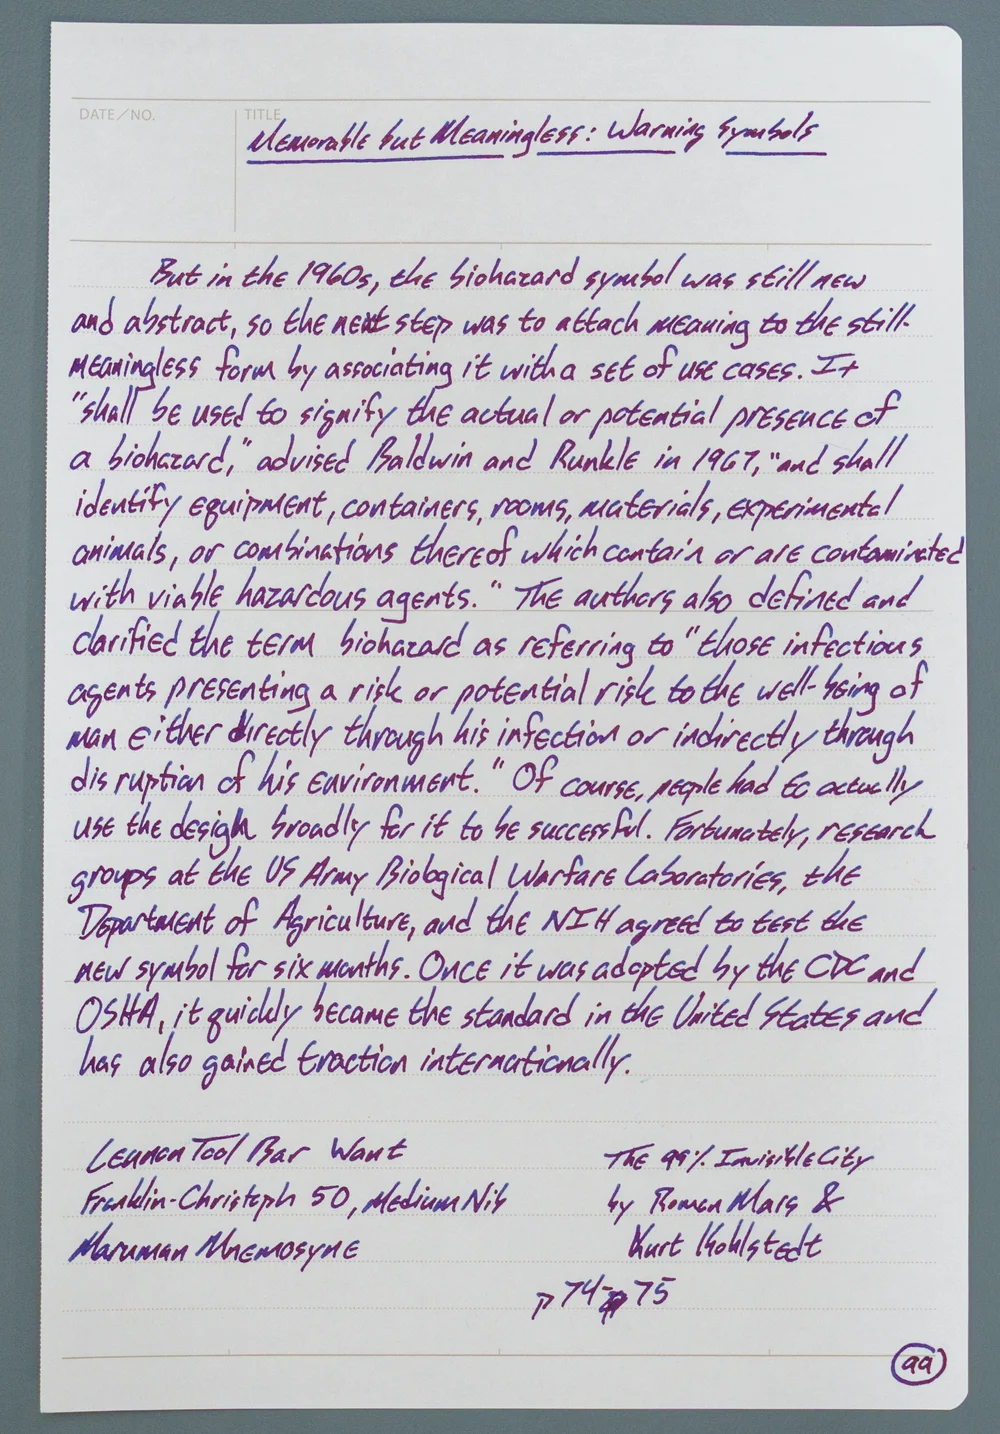 DATE/NO.
TITLE
Memorable but Meaningless: Warning Symbols
But in the 1960s, the biohazard symbol was still new
and abstract, so the next step was to attach meaning to the still-
meaningless form by associating it with a set of use cases. It
"shall be used to signify the actual or potential presence of
a biohazard," advised Baldwin and Runkle in 1967, "and shall
identify equipment, containers, rooms, materials, experimental
animals, or combinations thereof which contain or are contaminated
with viable hazardous agents." The authors also defined and
clarified the term biohazard as referring to "those infectious
agents presenting a risk or potential risk to the well-being of
man either directly through his infection or indirectly through
disruption of his environment." Of course, people had to actually
use the design broadly for it to be successful. Fortunately, research
groups at the US Army Biological Warfare Laboratories, the
Department of Agriculture, and the NIH agreed to test the
new symbol for six months. Once it was adopted by the CDC and
OSHA, it quickly became the standard in the United States and
has also gained traction internationally.
Lennon Tool Bar Want
Franklin-Christoph 50, Medium Nib
Maruman Mnemosyne
The 99% Invisible City
by Roman Mars &
Kurt Kohlstedt
p74-75
99